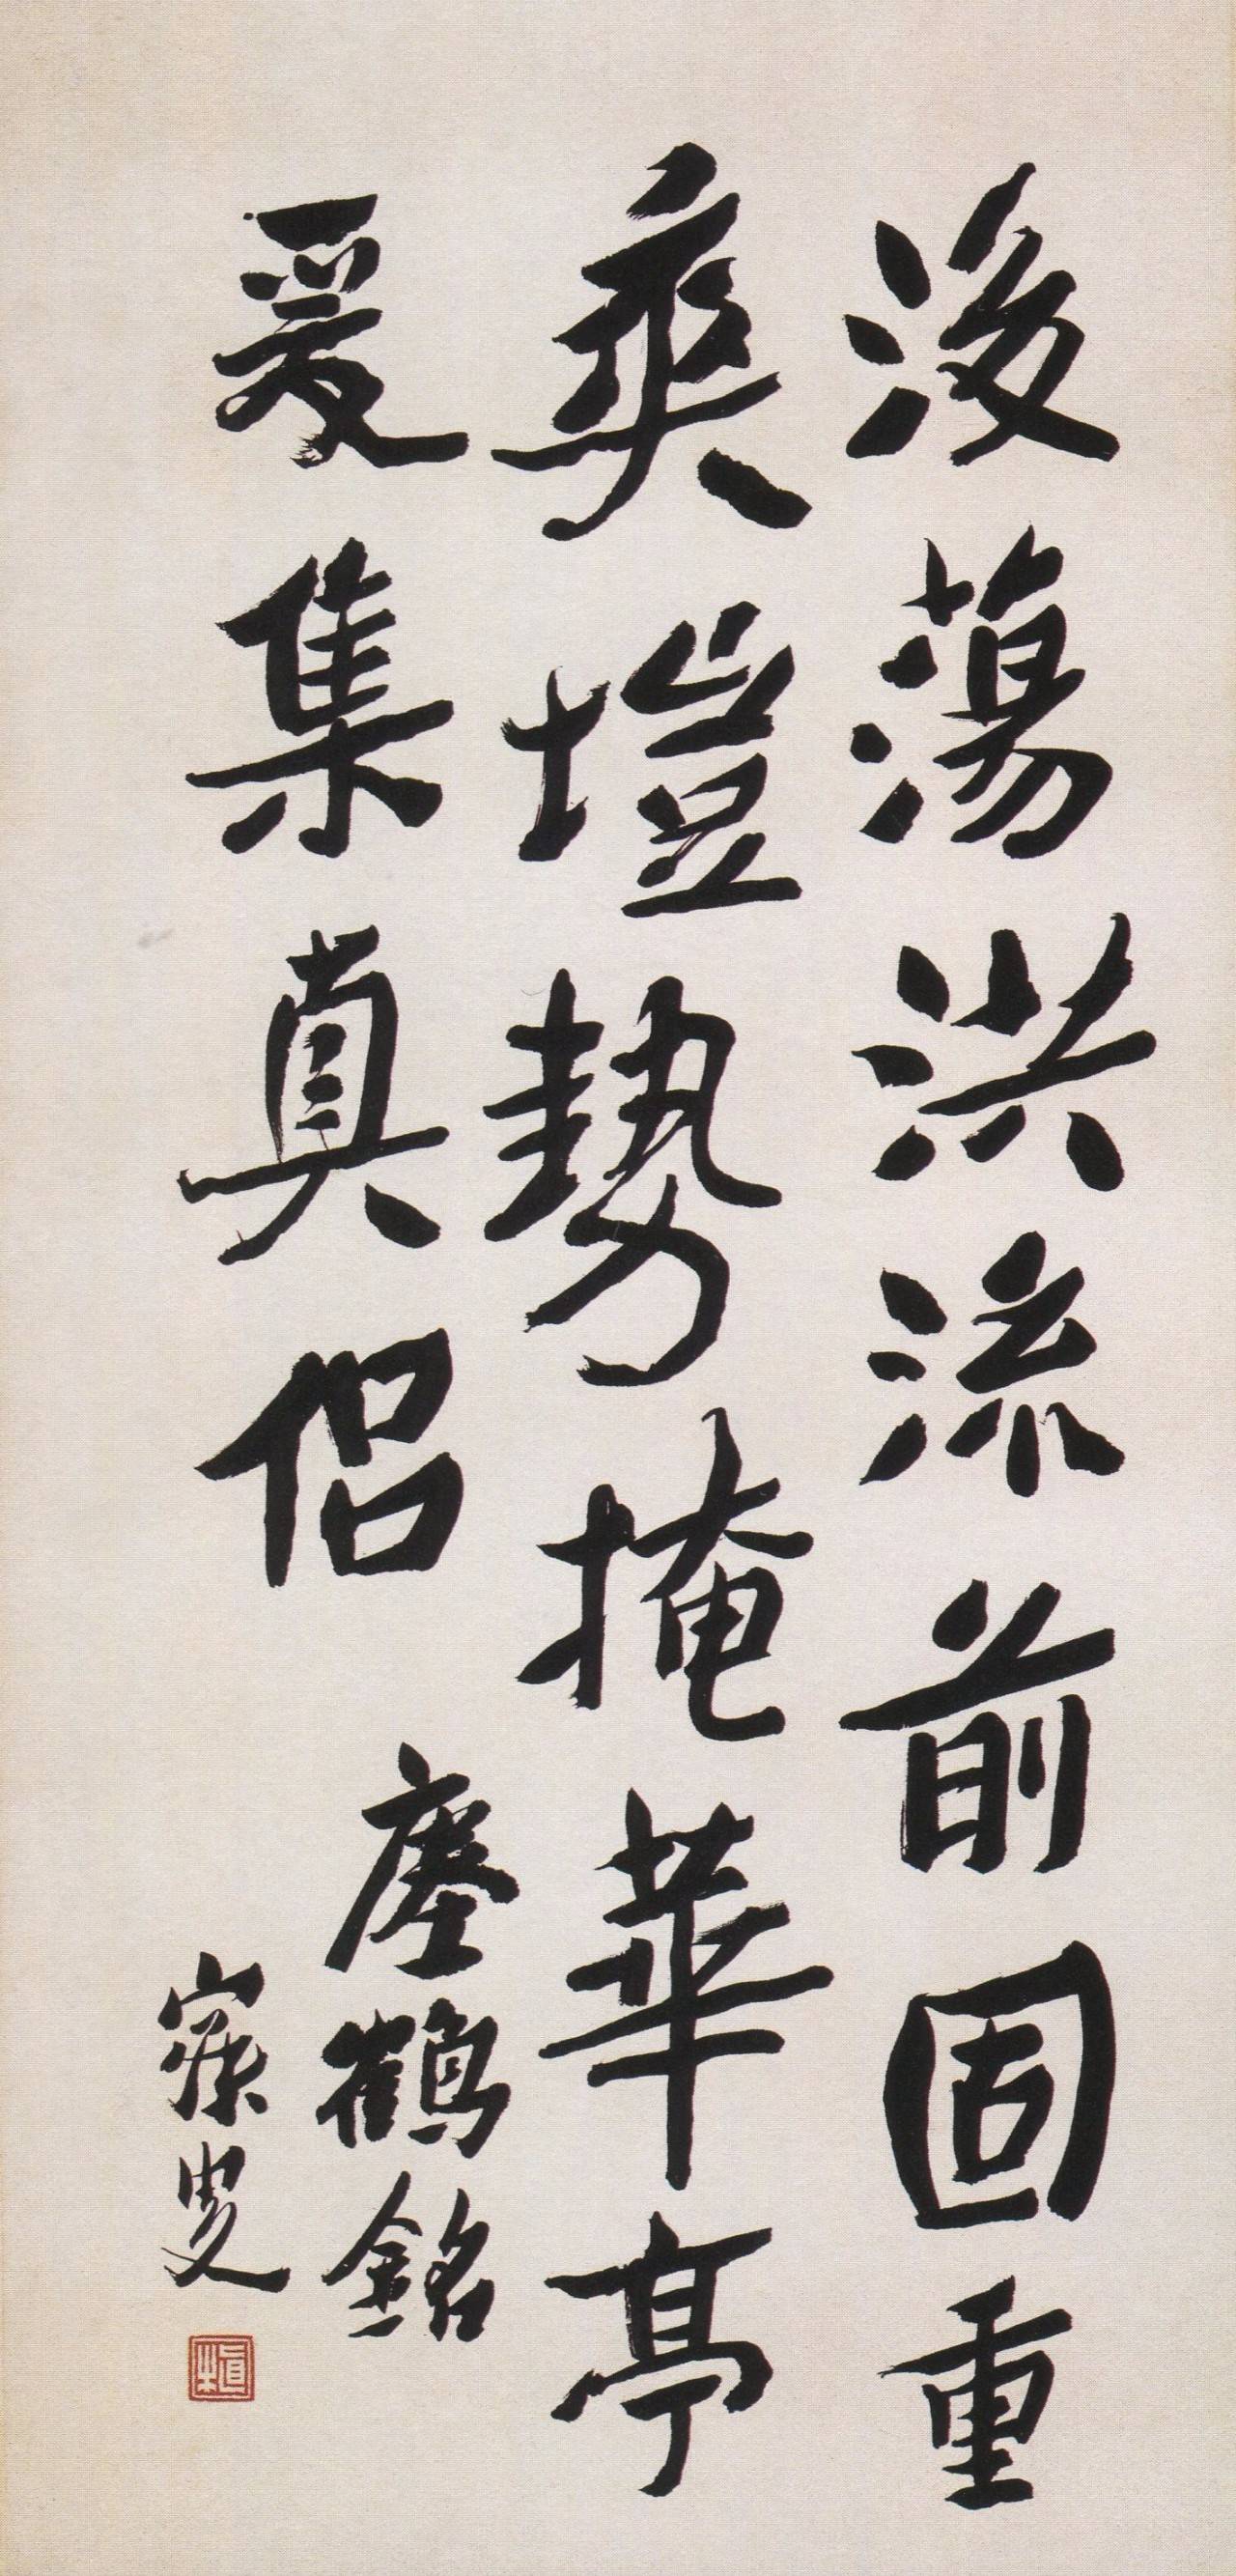 後蕩洪流前固重
爽塏勢掩華亭
爰集真侶
瘞鶴銘
寐叟
植